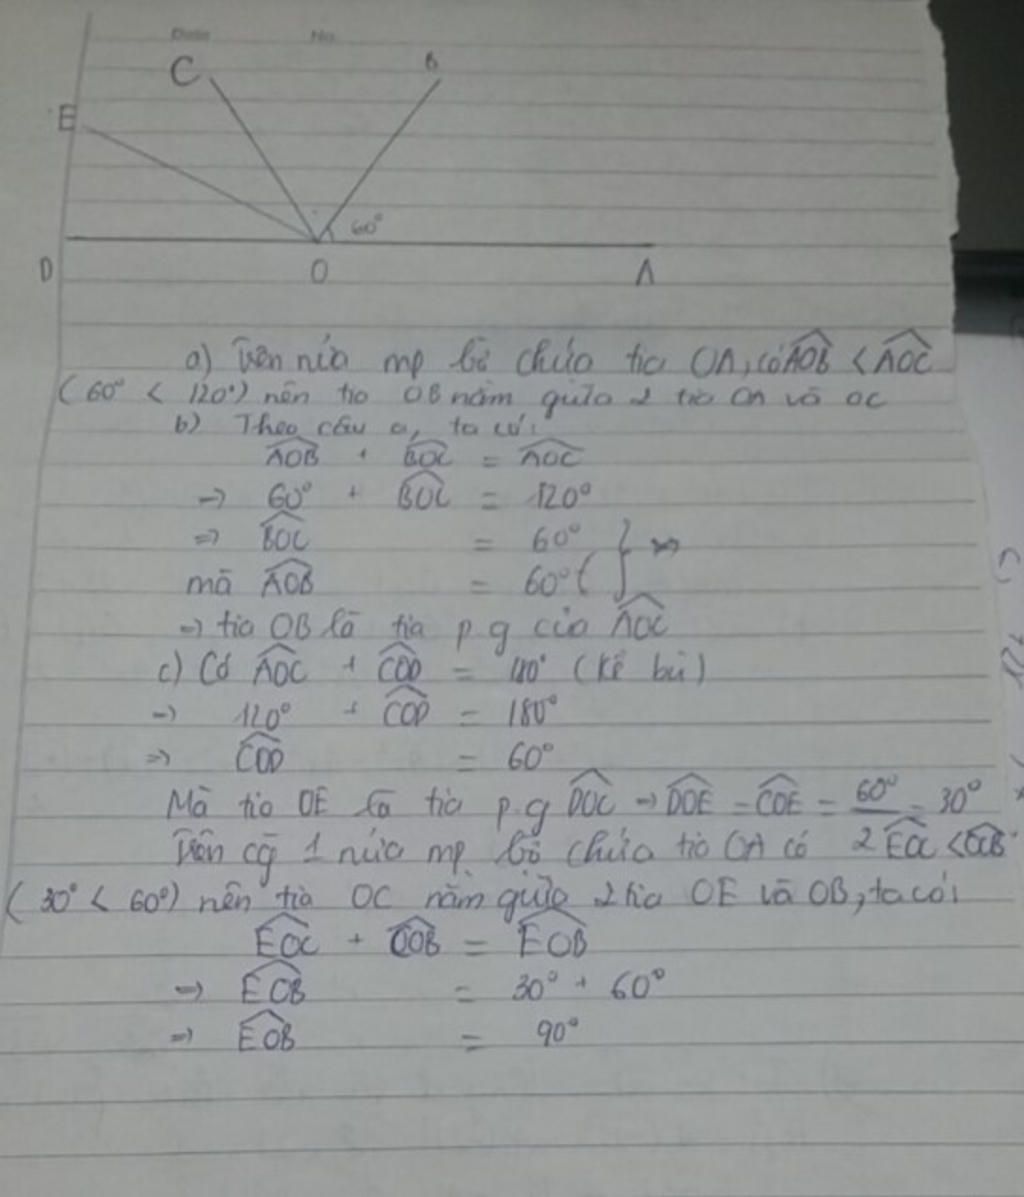 Date No.
C B
E
60°
D O A
a) Trên nửa mp bờ chứa tia OA, có AOB < AOC
(60° < 120°) nên tia OB nằm giữa 2 tia OA và OC
b) Theo câu a, ta có:
AOB + BOC = AOC
→ 60° + BOC = 120°
⇒ BOC = 60°
mà AOB = 60°
→ tia OB là tia p.g của AOC
c) Có AOC + COD = 180° (kề bù)
→ 120° + COD = 180°
⇒ COD = 60°
Mà tia OE là tia p.g DOC → DOE = COE = 60°/2 = 30°
Trên cg 1 nửa mp bờ chứa tia OA có EOC < COB
(30° < 60°) nên tia OC nằm giữa 2 tia OE và OB, ta có:
EOC + COB = EOB
→ EOB = 30° + 60°
⇒ EOB = 90°